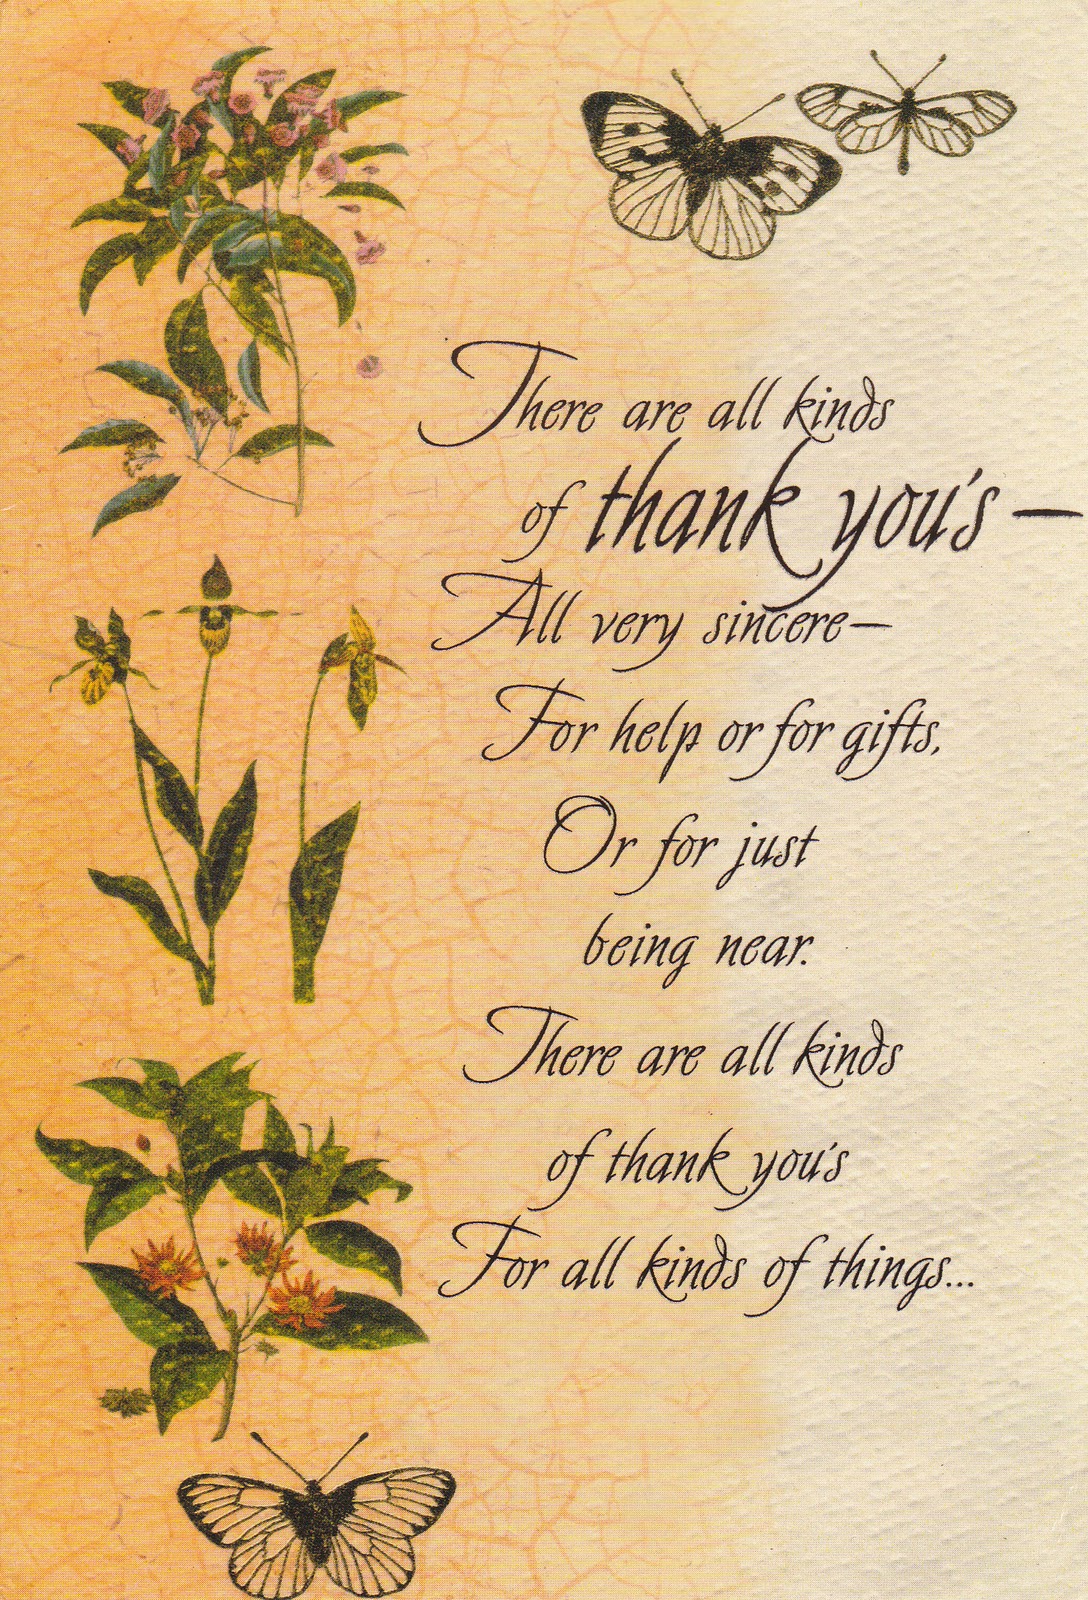 There are all kinds
of thank you's—
All very sincere—
For help or for gifts,
Or for just
being near.
There are all kinds
of thank you's
For all kinds of things...